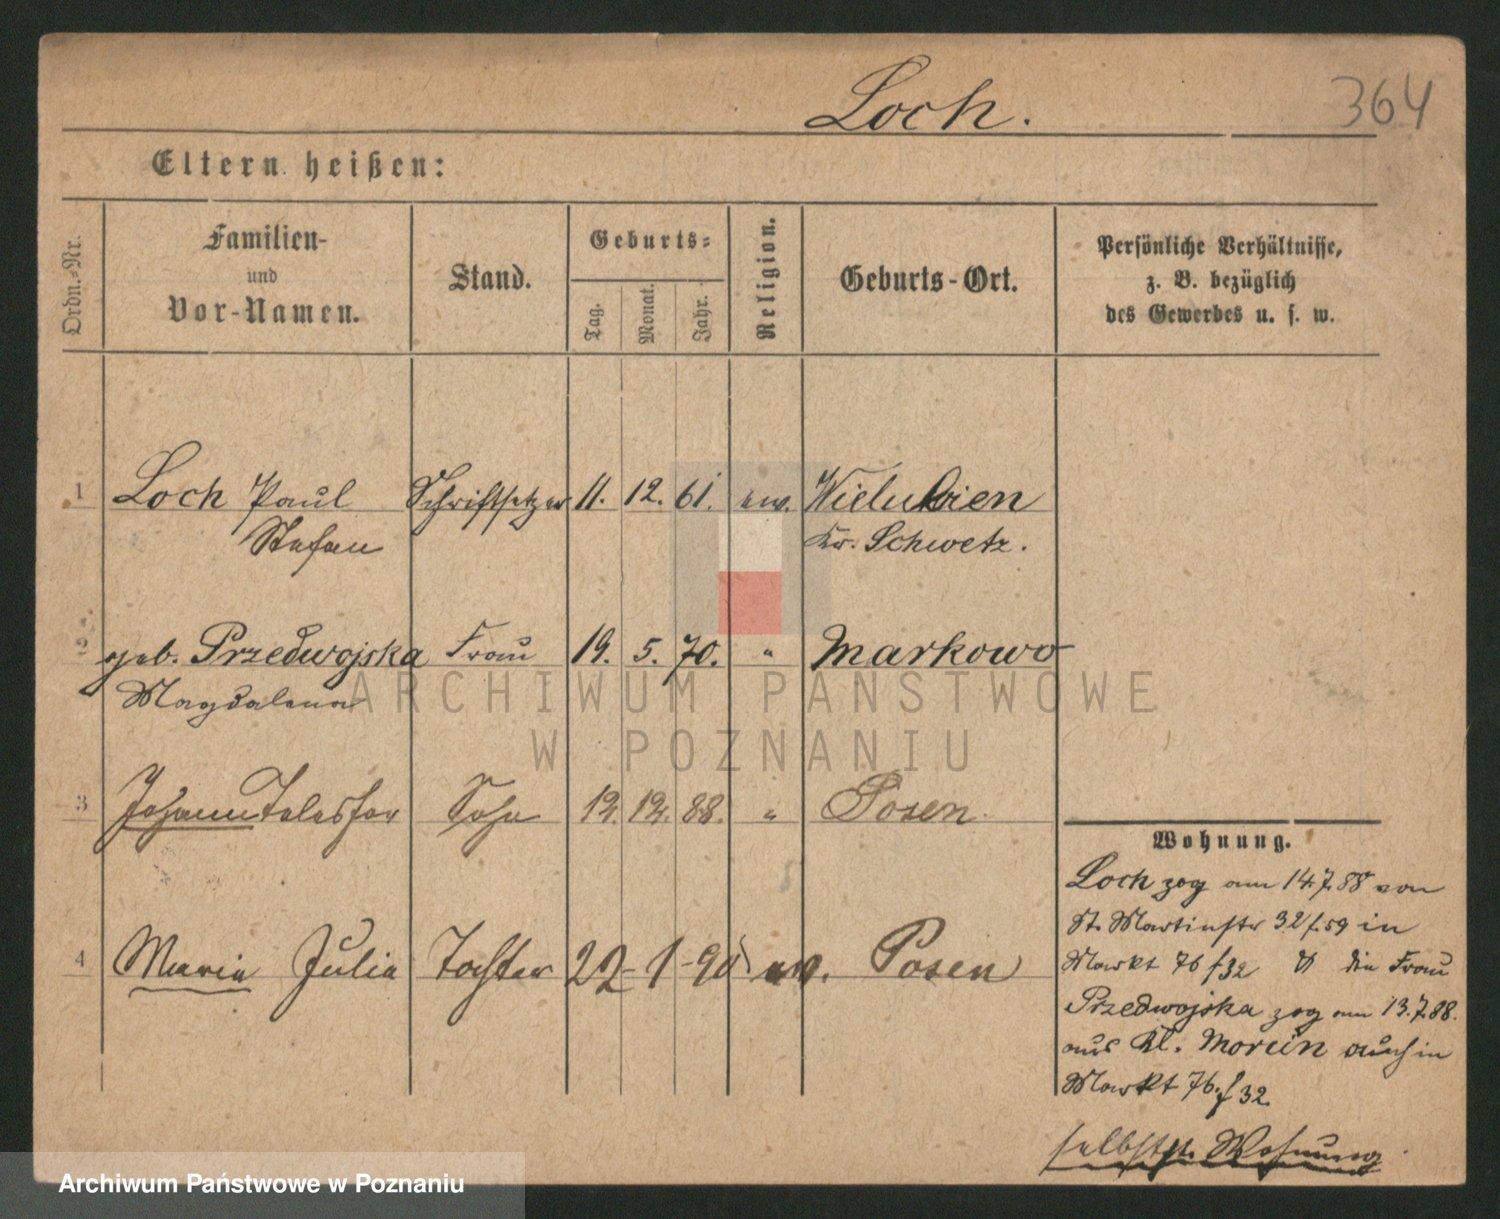 Loch. 364
Eltern heißen:
Ordn.-Nr.
Familien-
und
Vor-Namen.
Stand.
Geburts-
Tag.
Monat.
Jahr.
Religion.
Geburts-Ort.
Persönliche Verhältnisse,
z. B. bezüglich
des Gewerbes u. s. w.
1 Loch Paul Schriftsetzer 11. 12. 61. ew.
Stefan Kr. Schwetz.
2 geb. Przedwojska Frau 19. 5. 70. " Markowo
Magdalena
3 Johann Telesfor Sohn 12. 12. 88. " Posen.
4 Maria Julia Tochter 22-1-90 ew. Posen
Wohnung.
Loch zog am 14.7.88 von
St. Martinstr 32 f. 59 in
Markt 76 f 32 die Frau
Przedwojska zog am 13.7.88.
aus Kl. auch in
Markt 76. f 32.
selbstst. Wohnung
ARCHIWUM PAŃSTWOWE
W POZNANIU
Archiwum Państwowe w Poznaniu